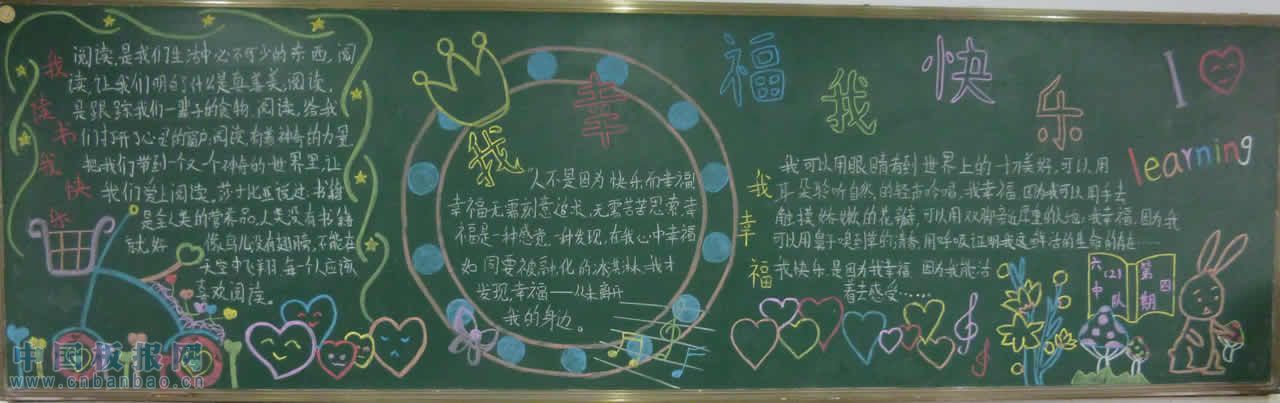 我读书我快乐
阅读,是我们生活中必不可少的东西,阅
读,让我们明白了什么是真善美,阅读,
是跟踪我们一辈子的食物,阅读,给我
们打开了心灵的窗户,阅读,有着神奇的力量,
把我们带到一个又一个神奇的世界里,让
我们爱上阅读。莎士比亚说过:书籍
是全人类的营养品,人类没有书籍
就好像鸟儿没有翅膀,不能在
天空中飞翔,每一个人应该
喜欢阅读。
我幸福我快乐
"人不是因为快乐而幸福"
幸福无需刻意追求,无需苦苦思索,幸
福是一种感觉,一种发现,在我心中幸福
如同要被融化的冰淇淋,我才
发现,幸福——从未离开
我的身边。
I
learning
我幸福
我可以用眼睛看到世界上的一切美好,可以用
耳朵聆听自然的轻声吟唱,我幸福,因为我可以用手去
触摸娇嫩的花瓣,可以用双脚亲近厚重的大地,我幸福,因为我
可以用鼻子嗅到草的清香,用呼吸证明我这鲜活的生命的存在……
我快乐,是因为我幸福,因为我能活
着去感受……
六(2)中队
第四期
中国板报网
www.cnbanbao.cn